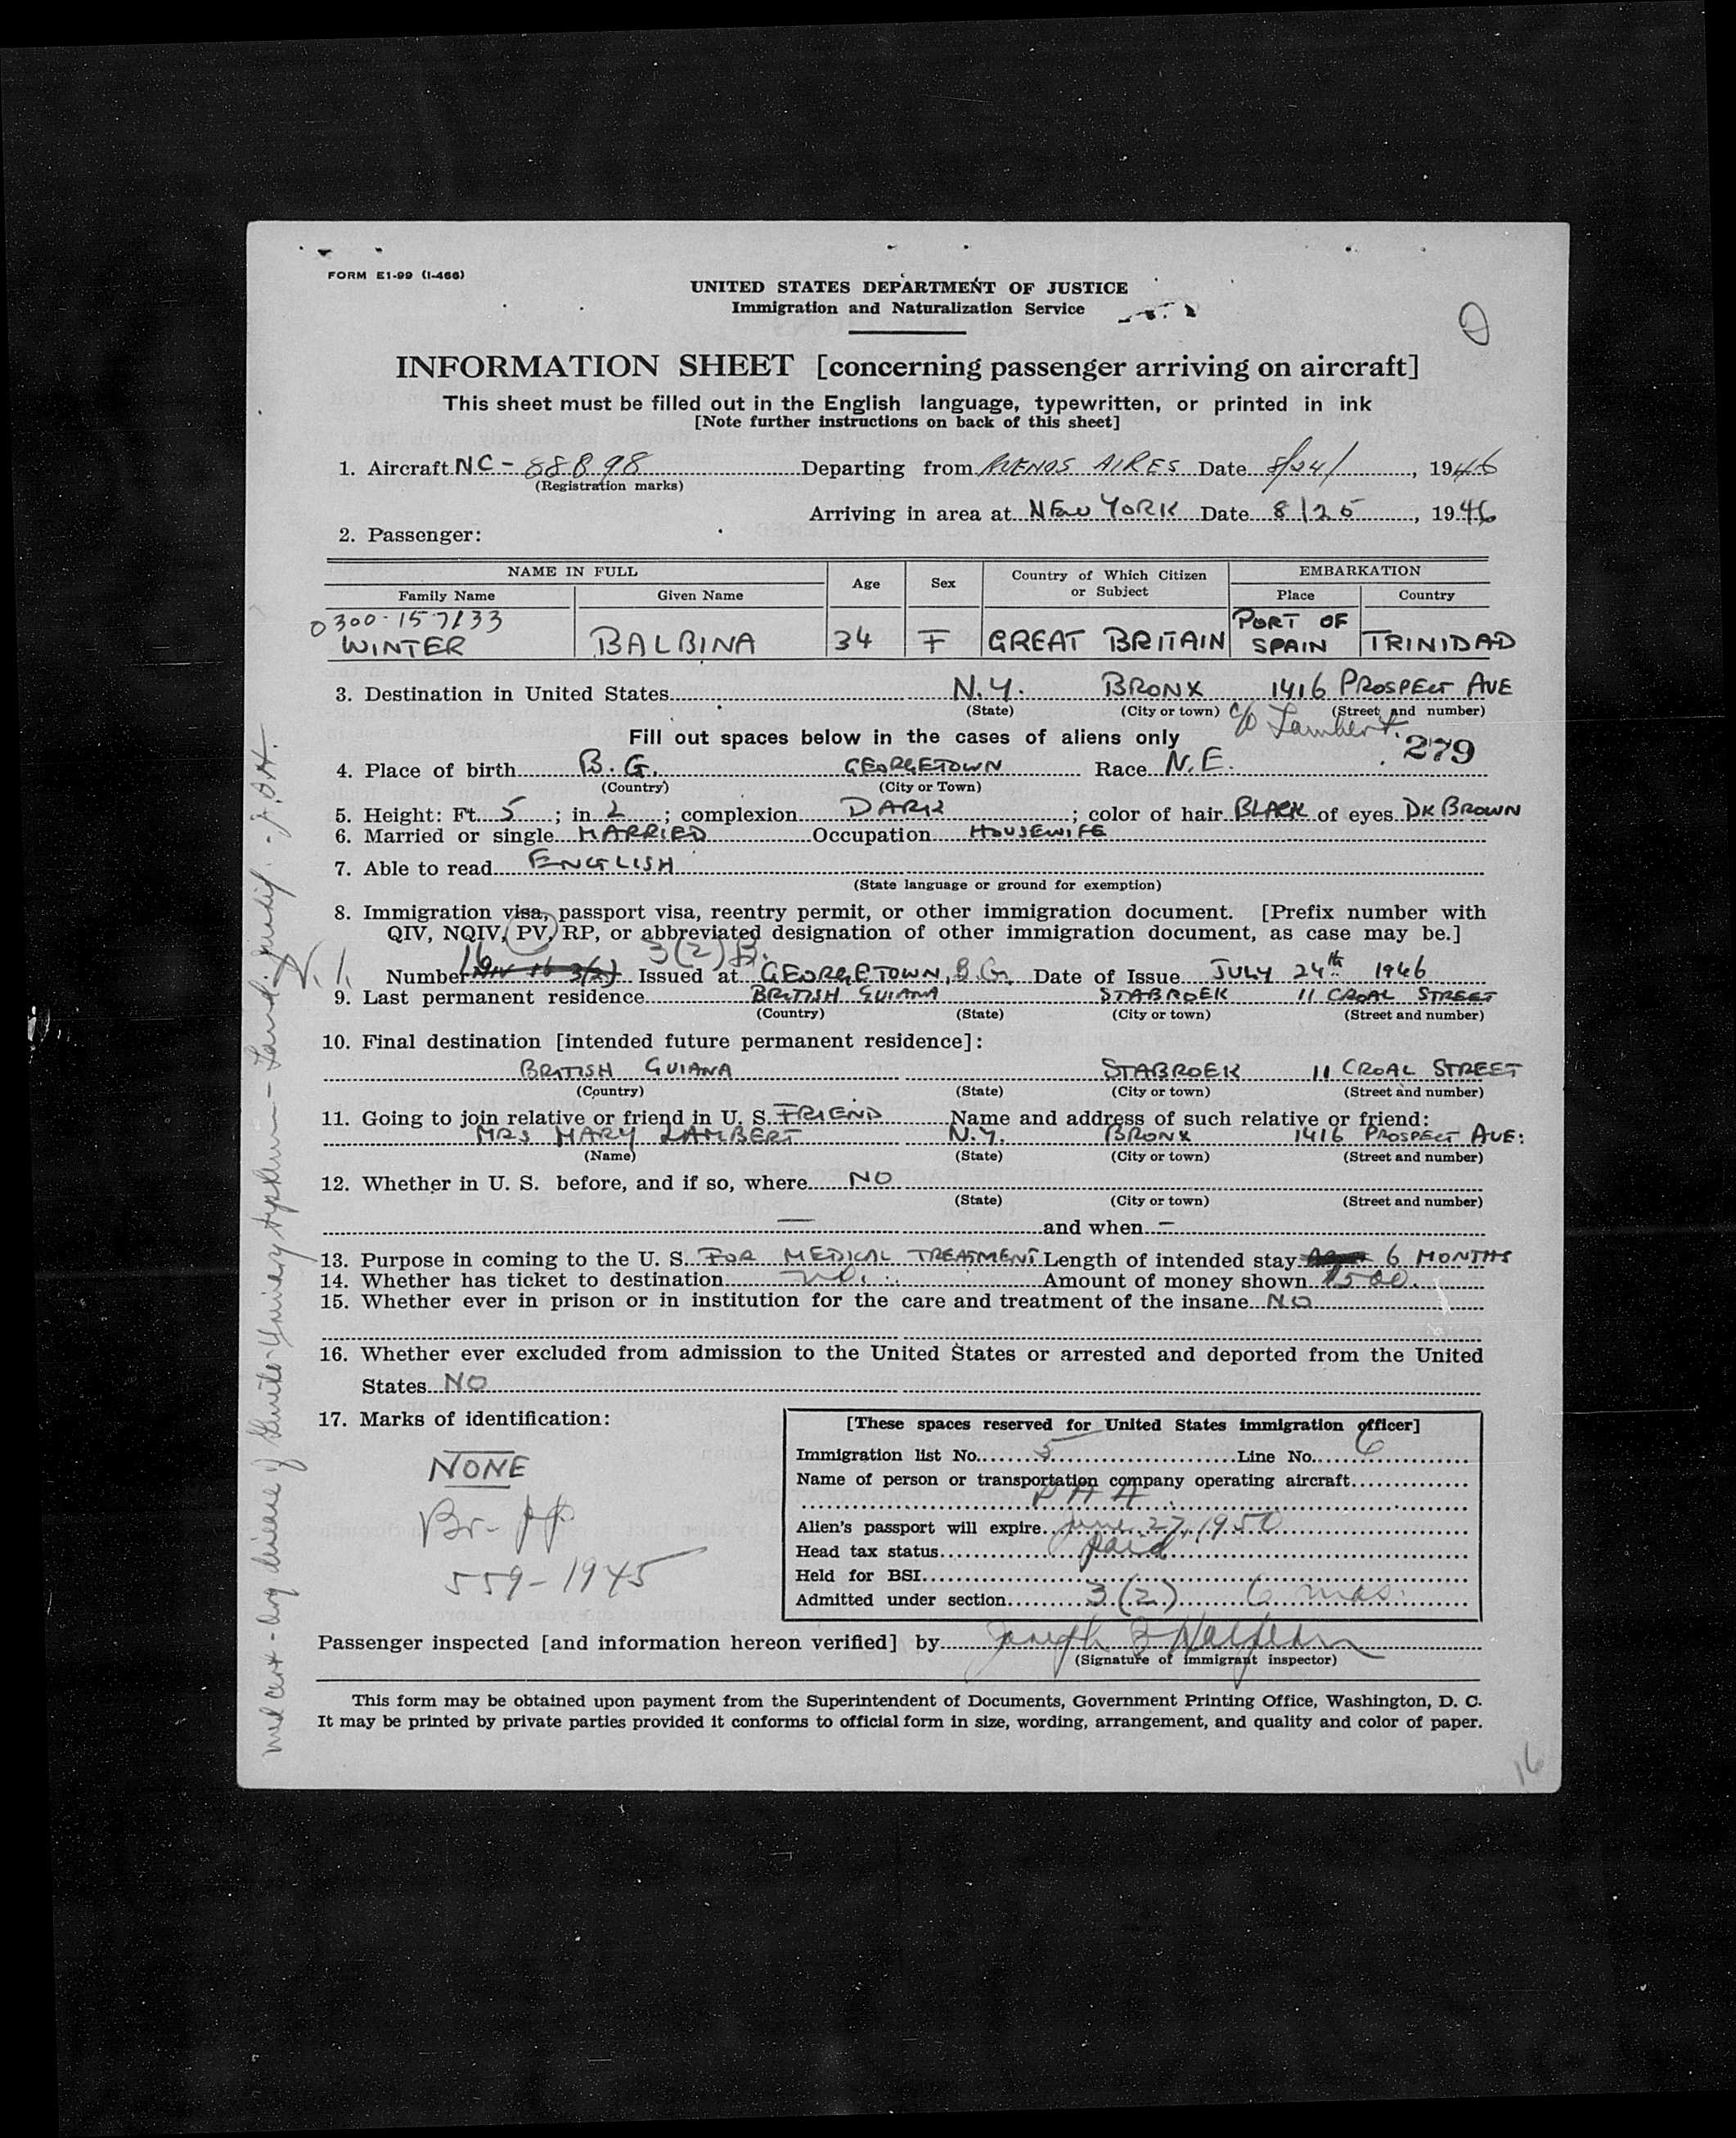 FORM E1-99 (I-466)
UNITED STATES DEPARTMENT OF JUSTICE
Immigration and Naturalization Service
INFORMATION SHEET [concerning passenger arriving on aircraft]
This sheet must be filled out in the English language, typewritten, or printed in ink
[Note further instructions on back of this sheet]
1. Aircraft NC-88898 Departing from BUENOS AIRES Date 8/24/, 1946
(Registration marks)
Arriving in area at NEW YORK Date 8/25, 1946
2. Passenger:
NAME IN FULL Age Sex Country of Which Citizen or Subject EMBARKATION
Family Name Given Name Place Country
0300-157133
WINTER BALBINA 34 F GREAT BRITAIN PORT OF SPAIN TRINIDAD
3. Destination in United States N.Y. BRONX 1416 PROSPECT AVE
(State) (City or town) (Street and number)
c/o Lambert.
Fill out spaces below in the cases of aliens only
279
4. Place of birth B.G. GEORGETOWN Race N.E.
(Country) (City or Town)
5. Height: Ft. 5; in 2; complexion DARK; color of hair BLACK of eyes DK BROWN
6. Married or single MARRIED Occupation HOUSEWIFE
7. Able to read ENGLISH
(State language or ground for exemption)
8. Immigration visa, passport visa, reentry permit, or other immigration document. [Prefix number with
QIV, NQIV, PV, RP, or abbreviated designation of other immigration document, as case may be.]
V. 16 3(2)B.
Number Issued at GEORGETOWN, B.G. Date of Issue JULY 24th 1946
9. Last permanent residence BRITISH GUIANA STABROEK 11 CROAL STREET
(Country) (State) (City or town) (Street and number)
10. Final destination [intended future permanent residence]:
BRITISH GUIANA STABROEK 11 CROAL STREET
(Country) (State) (City or town) (Street and number)
11. Going to join relative or friend in U. S. FRIEND Name and address of such relative or friend:
MRS MARY LAMBERT N.Y. BRONX 1416 PROSPECT AVE:
(Name) (State) (City or town) (Street and number)
12. Whether in U. S. before, and if so, where NO
(State) (City or town) (Street and number)
— and when —
13. Purpose in coming to the U. S. FOR MEDICAL TREATMENT Length of intended stay 6 MONTHS
14. Whether has ticket to destination no. Amount of money shown $500.
15. Whether ever in prison or in institution for the care and treatment of the insane NO
16. Whether ever excluded from admission to the United States or arrested and deported from the United
States NO
17. Marks of identification:
NONE
Br- pp
559-1945
[These spaces reserved for United States immigration officer]
Immigration list No. 5 Line No. 6
Name of person or transportation company operating aircraft
P A A
Alien's passport will expire June 27, 1950
Head tax status paid
Held for BSI
Admitted under section 3(2) 6 mos.
Passenger inspected [and information hereon verified] by Joseph
(Signature of immigrant inspector)
This form may be obtained upon payment from the Superintendent of Documents, Government Printing Office, Washington, D. C.
It may be printed by private parties provided it conforms to official form in size, wording, arrangement, and quality and color of paper.
med cert - disease of Genito-Urinary system -
16